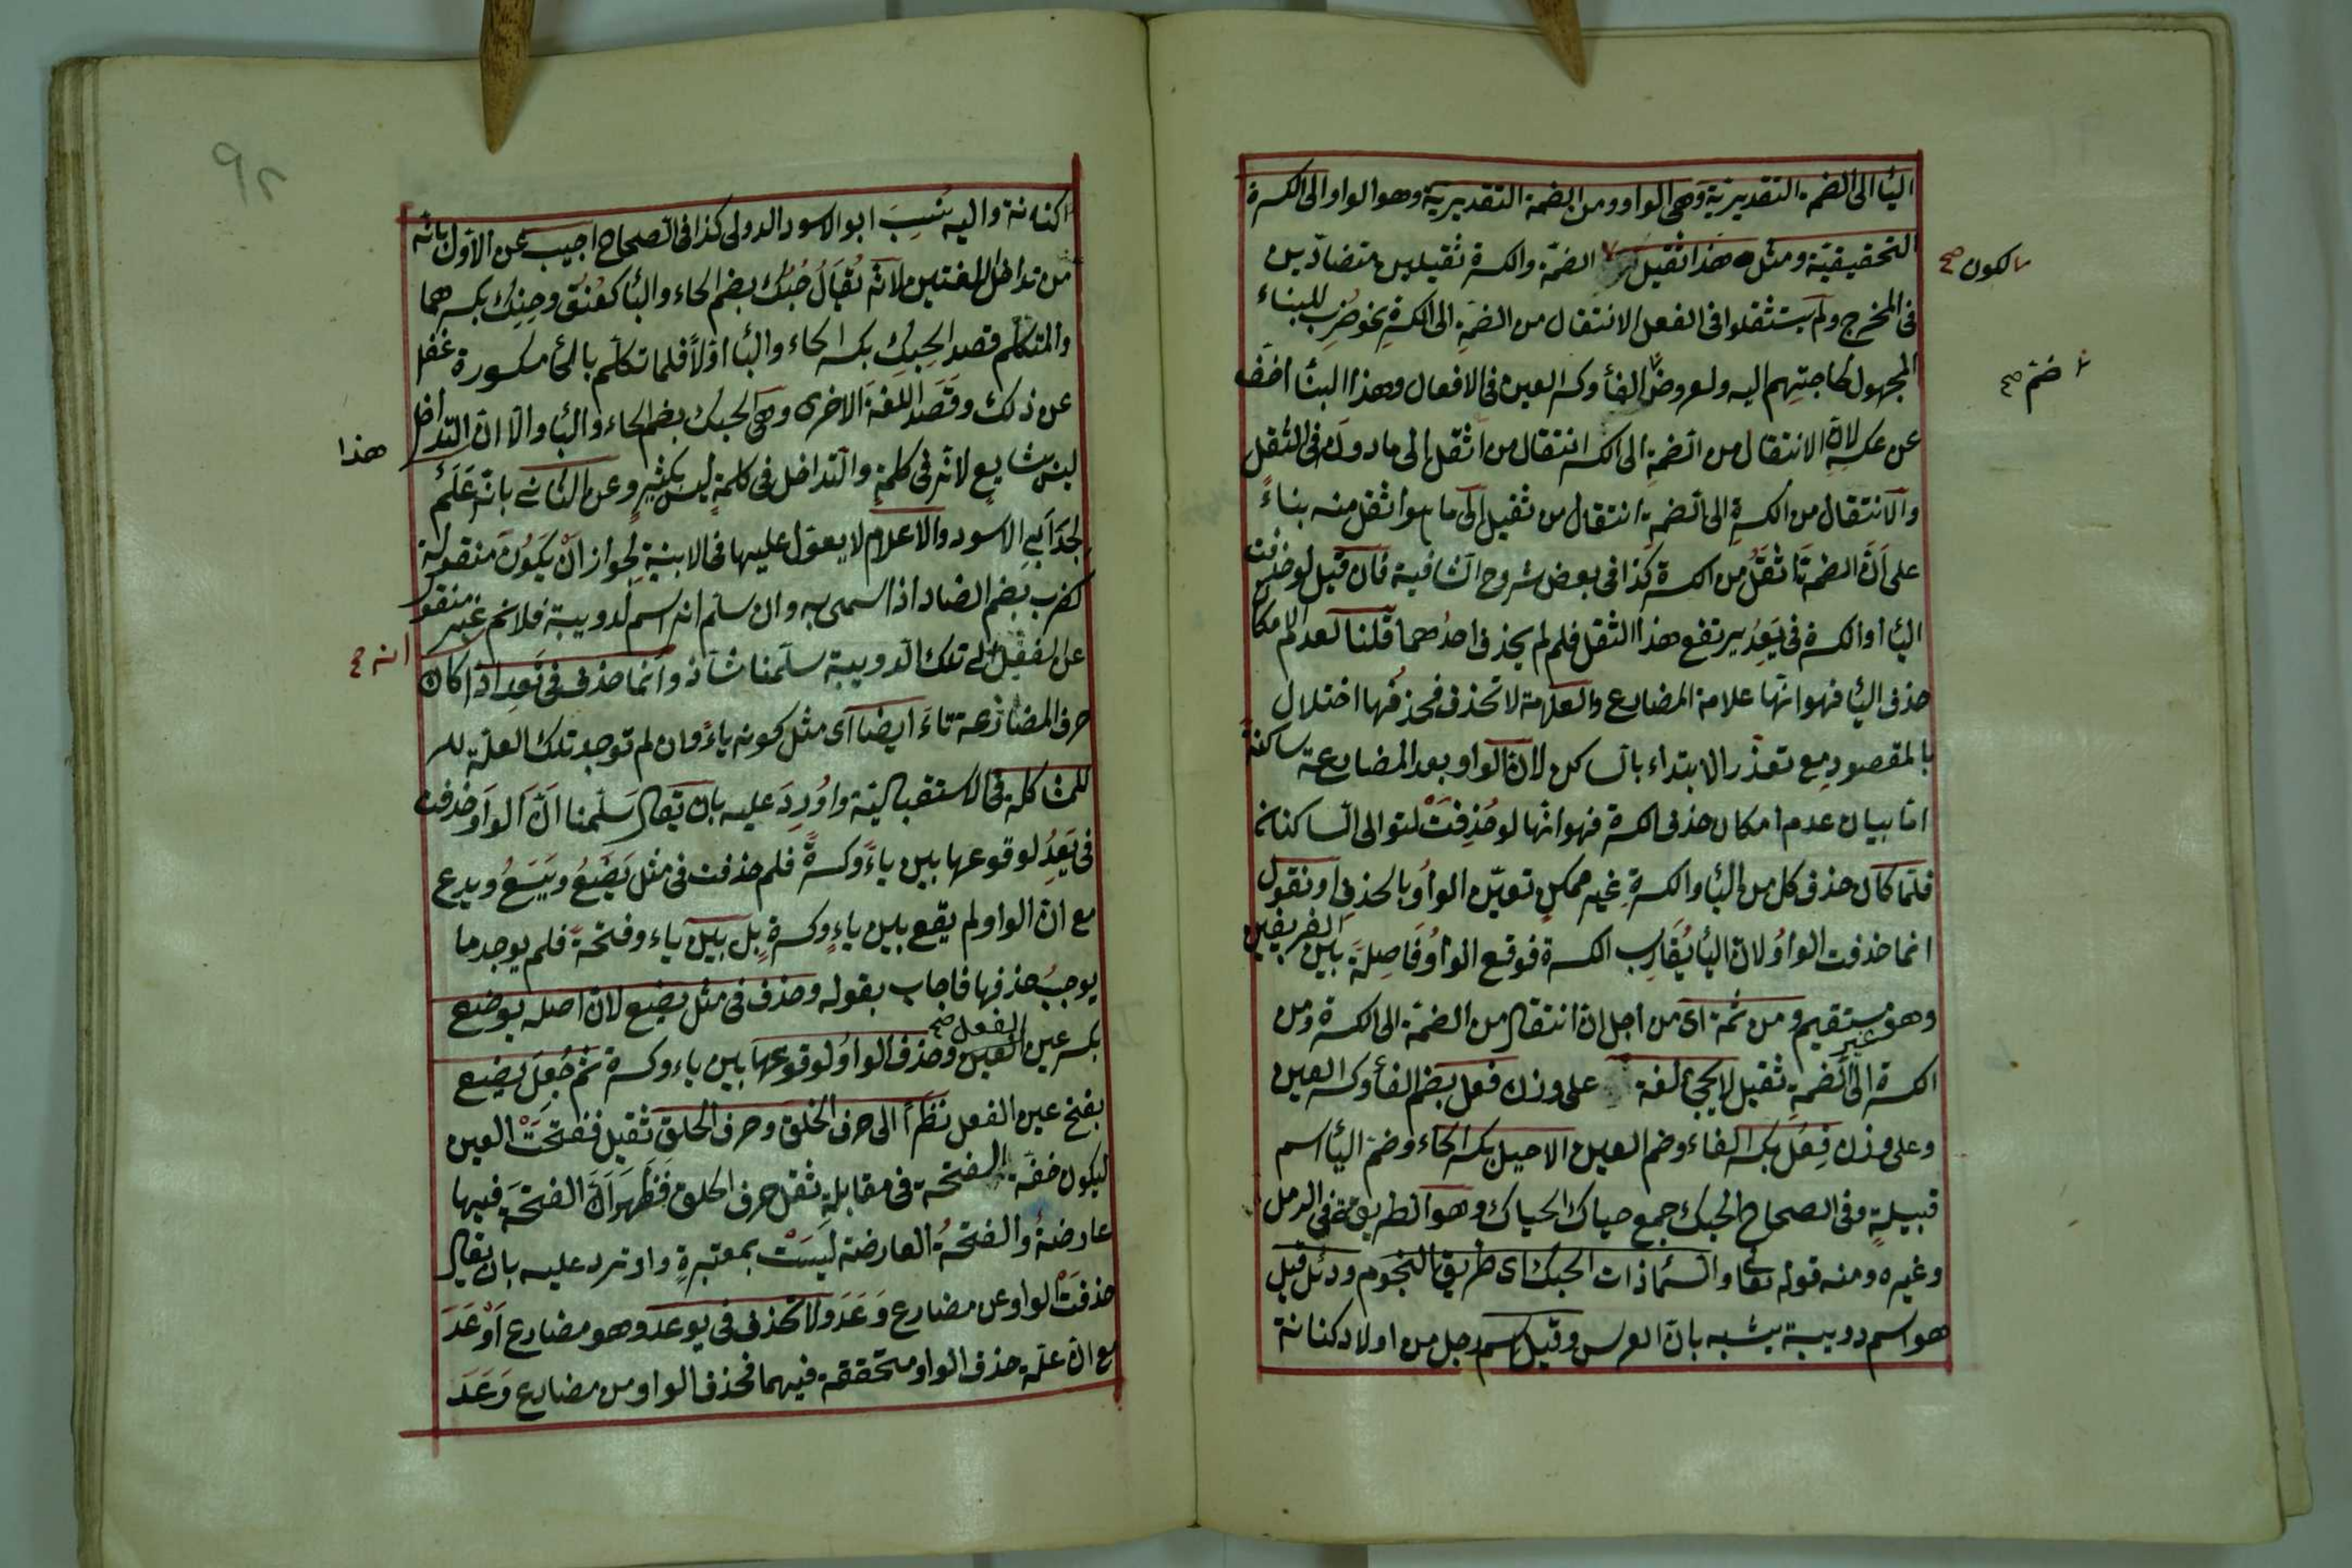 اليا الى الضمة التقديرية وهى الواو ومن الضمة التقديرية وهو الواو الى الكسرة
التحقيقية ومثل هذا ثقيل الضمة والكسرة ثقيلين متضادين
لكون صح
فى المخرج ولم يستثقلوا فى الفعل الانتقال من الضمة الى الكسرة نحو ضُرِب للبناء
المجهول لحاجتهم اليه ولعروض الفأ وكسر العين فى الافعال وهذا البنأ اخف
ضم صح
عن عكسه لان الانتقال من الضمة الى الكسر انتقال من اثقل الى ما دون فى الثقل
والانتقال من الكسرة الى الضمة انتقال من ثقيل الى ما هو اثقل منه بناءً
على اَنَّ الضمة اثقل من الكسرة كذا فى بعض شروح الشافية فان قيل لو حذفت
اليأ او الكسرة فى يَعِدُ يرتفع هذا الثقل فلم لم يحذف احدُهما قلنا لعدم الامكان
حذف اليأ فهو انّها علامة المضارع والعلامة لا تحذف فحذفُها اختلال
بالمقصود مع تعذر الابتداء بالساكن لان الواو بعد المضارعة ساكنة
امّا بيان عدم امكان حذف الكسرة فهو انها لو حُذِفَتْ لتوالى الساكنان
فلمّا كان حذف كل من اليأ والكسرة غير ممكن تعيّن الواوُ بالحذف او نقول
انما حذفت الواوُ لان اليأ يُقارب الكسرة فوقع الواوُ فَاصِلةً بين الفريقين
وهو غير مستقيم ومن ثمة اى من اجل ان انتقال من الضمة الى الكسرة ومن
الكسرة الى الضمة ثقيل لا يجئ لغة على وزن فعل بضم الفأ وكسر العين
وعلى وزن فِعُل بكسر الفاء وضم العين الا حبك بكسر الحاء وضم اليأ اسم
قبيلة وفى الصحاح الحبك جمع حباك الحياك وهو الطريقة فى الرمل
وغيره ومنه قوله تعالى والسّماء ذات الحبك اى طريق النجوم ودئل قيل
هو اسم دويبة يشبه بابن العرس وقيل اسم رجل من اولاد كنانة
٩٢
اكنانة واليه نُسِبَ ابو الاسود الدولى كذا فى الصحاح اجيب عن الاول بانه
من تداخل اللغتين لانّه يُقالُ حُبُك بضم الحاء والبأ كعُنُق وحِبِك بكسرهما
والمتكلم قصد الحِبِك بكسر الحاء والبأ اولاً فلما تكلم بالحأ مكسورة غفل
عن ذلك وقصد اللغة الاخرى وهى الحبك بضم الحاء والبأ والا ان التداخل
هذا
ليس شايع لانه فى كلمة والتداخل فى كلمة ليس بكثير وعن الثانى بانّه عَلَمٌ
لجد ابى الاسود والاعلام لا يعوّل عليها فى الابنية لجواز ان يكون منقولة
كضرب بضم الضاد اذا سمى به وان سلم انه اسم لدويبة فلانم غير منقول
انه صح
عن الفعل الى تلك الدويبة سلّمنا شاذ وانما حذف فى تَعِد اذا كان
حرف المضارعة تاءً ايضا اى مثل كونه ياءً وان لم توجد تلك العلة للر
للمشاكلة فى الاستقبالية واُورِدَ عليه بان يقال سَلّمنا اَنّ الواو حذفت
فى يَعِدُ لوقوعها بين ياءً وكسرةً فلم حذفت فى مثل يَضَعُ ويَسَعُ ويدع
مع ان الواو لم يقع بين ياءٍ وكسرةٍ بل بين ياء وفتحة فلم يوجد ما
يوجبُ حذفها فاجاب بقوله وحذف فى مثل يضع لان اصله يوضع
بكسر عين الفعل صح العين وحذف الواوُ لوقوعها بين ياء وكسرة ثم جُعِلَ يضع
بفتح عين الفعل نظراً الى حرف الحلق وحرف الحلق ثقيل ففتحَتْ العين
ليكون خفة الفتحة فى مقابلة ثقل حرف الحلق فَظَهَرَ اَنّ الفتحة فيها
عارضةُ والفتحةُ العارضة ليسَتْ بمعتبرةٍ واو نرد عليه بان يقال
حذفَتْ الواو عن مضارع وَعَدَ ولا تحذف فى يوعد وهو مضارع اَوْعَدَ
مع ان علة حذف الواو متحققة فيهما فحذف الواو من مضارع وَعَدَ